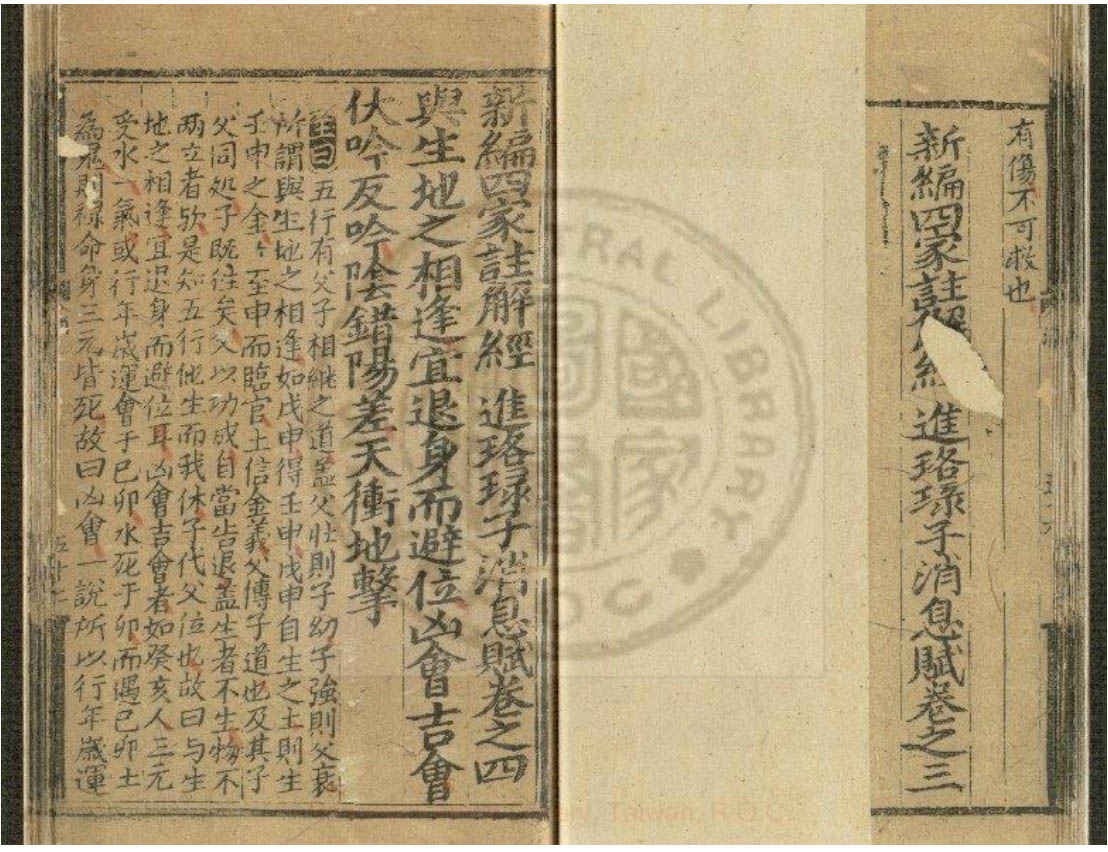 有傷不可救也
新編四家註解經 進珞琭子消息賦卷之三
新編四家註解經 進珞琭子消息賦卷之四
與生地之相逢宜退身而避位凶會吉會
伏吟反吟陰錯陽差天衝地擊
五行有父子相継之道盖父壯則子幼子強則父衰
所謂與生地之相逢如戊申得壬申戊申自生之土則生
壬申之金〻至申而臨官土信金義父傳子道也及其子
父同処子既往矣父以功成自當告退盖生者不生物不
两立者欤是知五行他生而我休子代父位也故曰与生
地之相逢宜退身而避位耳凶會吉會者如癸亥人三元
受水一氣或行年歲運會于己卯水死于卯而遇己卯土
為鬼則禄命身三元皆死故曰凶會一說所以行年歲運
CENTRAL LIBRARY
R.O.C.
Taiwan, R.O.C.